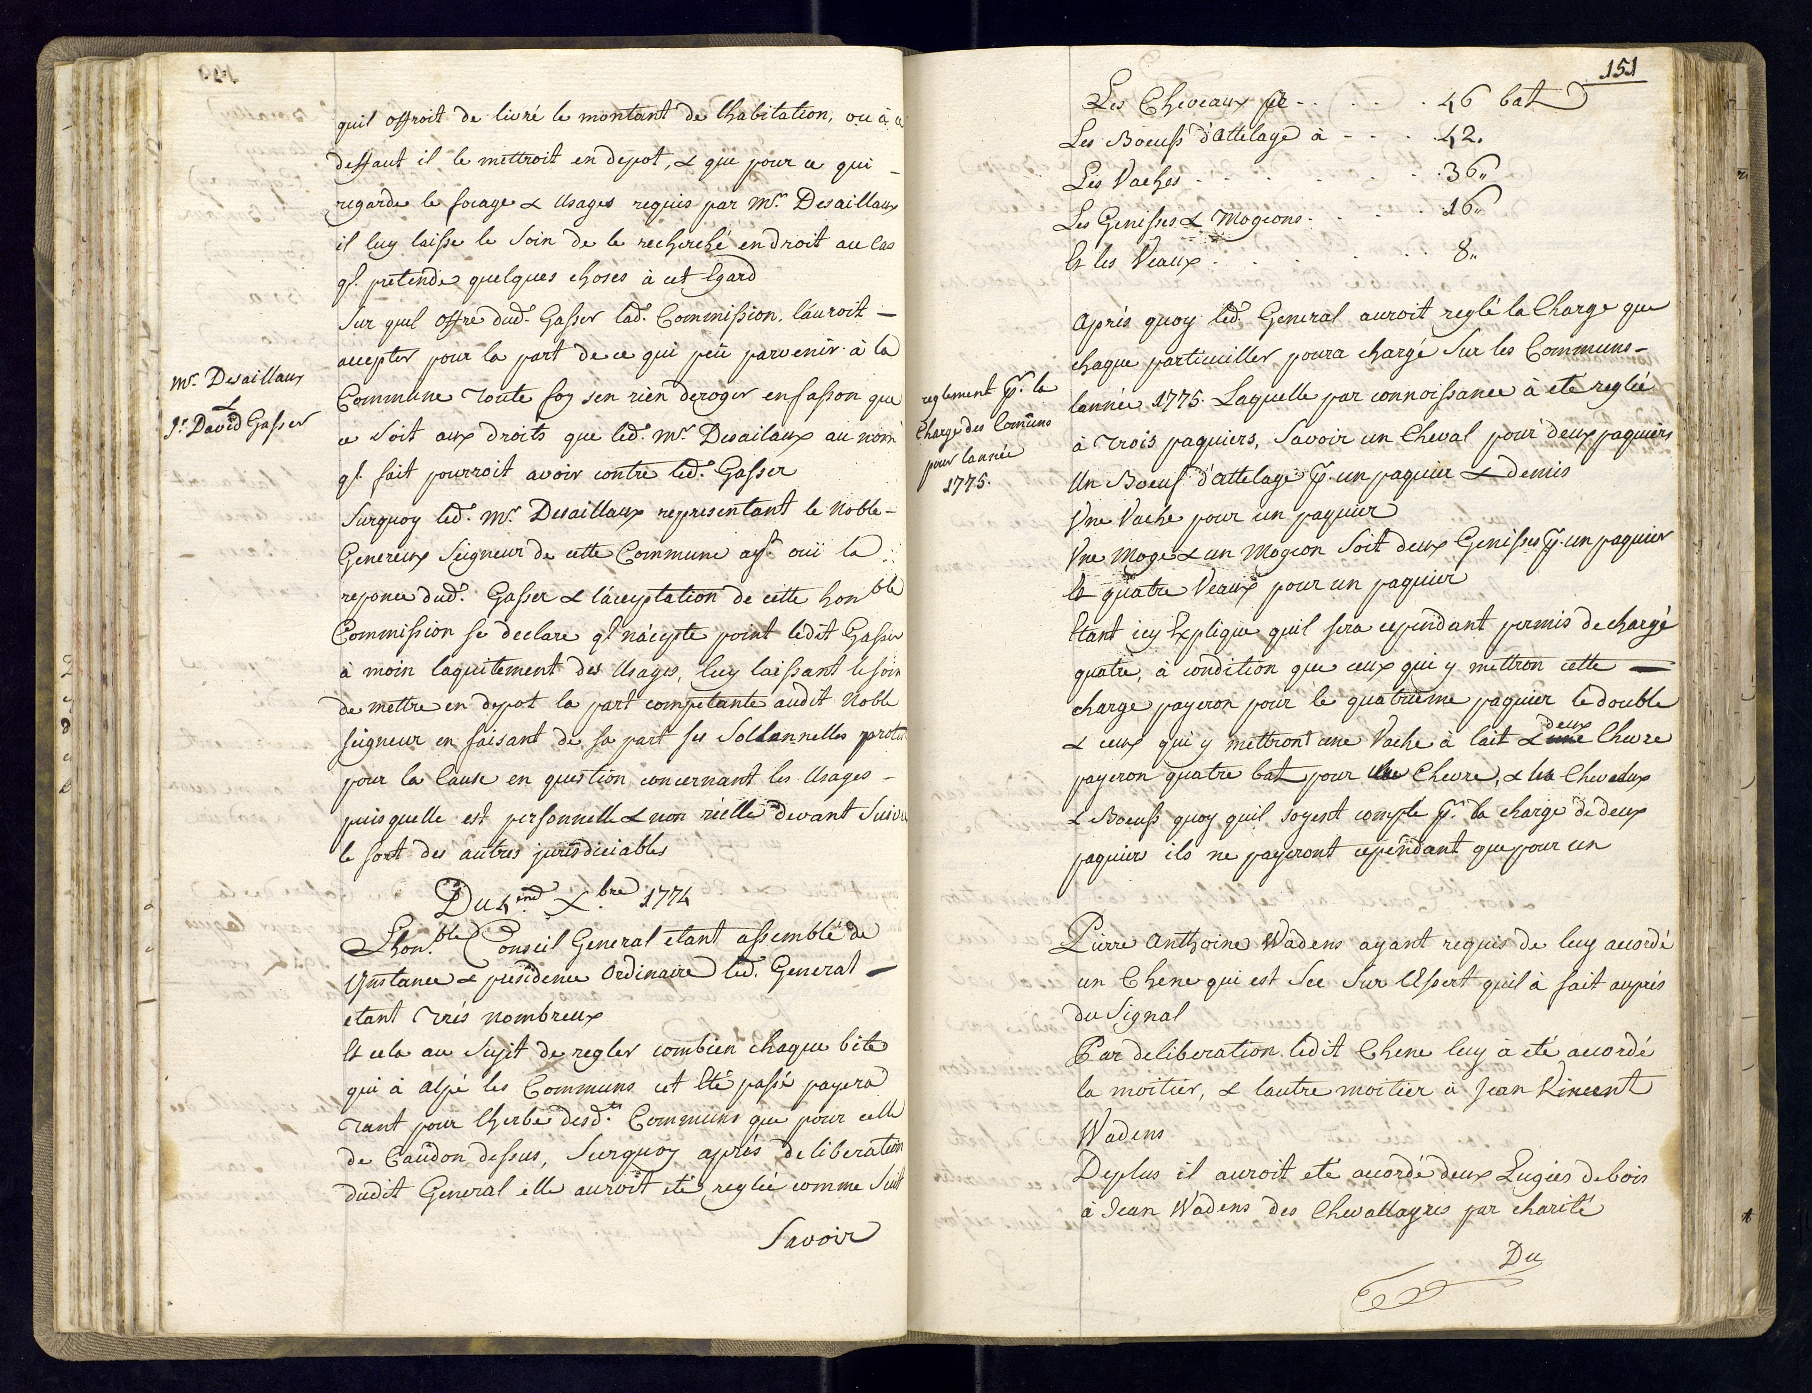 quil offroit de livré le montant de lhabitation, ou à ce
deffaut il le mettroit en depot, & que pour ce qui
regarde le focage & Usages requis par Mr. Desaillaux
il luy laisse le soin de le recherché endroit au Cas
ql. pretende quelques choses à cet Egard
Sur quel offre dud. Gasser lad. Commission, láuroit
accepter pour la part de ce qui peü parvenir à la
Mr. Desaillaux
&
Jn. David Gasser
Commune toute foy sen rien deroger enfasson que
ce soit aux droits que led. Mr. Desailaux au nom
ql. fait pourroit avoir contre led. Gasser
Surquoy led. Mr. Desaillaux representant le Noble
Genereux Seigneur de cette Commune ayt. oüi la
reponce dud. Gasser & láceptation de cette honble
Commission se declare ql. nácepte point ledit Gasser
à moin laquitement des Usages, luy laissant le soin
de mettre en depot la part competante audit Noble
seigneur en faisant de sa part ses Sollannelles protes
pour la Cause en question concernant les Usages
puisquelle est personnelle & non réelle devant Suivre
le sort des autres jurisdiciables
Du Xbre 1774
Lhon.ble Conseil General etant assemblé de
Instance & presidence Ordinaire led. General
etant très nombreux
Et cela au Sujet de regler combien chaque bête
qui à Alpé les Communs cet Eté passé payera
tant pour lherbe desd.ts Communs que pour celle
de Caudon dessus, Surquoy après deliberation
dudit General elle auroit été reglée comme Suit
Savoir
151
Les Cheveaux pr 46 bat
Les Boeufs d'attelage à 42.
Les Vaches 36"
Les Genisses & Mogeons 16"
Et les Veaux 8"
Après quoy led. General auroit reglé la Charge que
chaque particuiller poura chargé sur les Communs
reglement pr. la
Charge des Comuns
pour lannée
1775.
lannée 1775. Laquelle par connoissance à eté reglée
à trois paquiers, Savoir un Cheval pour deux paquiers
Un Boeuf d'attelage pr. un paquier & demis
Une Vache pour un paquier
Une Moge & un Mogeon Soit deux Genisses pr. un paquier
Et quatre Veaux pour un paquier
Etant icy Explique quil sera cependant permis de chargé
quatre, à condition que ceux qui y mettron cette
charge payeron pour le quatrième paquier le double
& ceux qui y mettront une Vache à lait & deux Chevre
payeron quatre bat pour Chevre, & les Cheveaux
& Boeufs quoy quil soyent compte pr. la charge de deux
paquiers ils ne payeront cependant que pour un
Pierre Anthoine Wadens ayant requis de luy accordé
un Chene qui est Sec Sur lEssert quil à fait auprès
du Signal
Par deliberation ledit Chene luy à eté accordé
la moitier, & lautre moitier à Jean Vincent
Wadens
Deplus il auroit eté accordé deux Lugées de bois
à Jean Wadens des Chevallayres par charité
Du